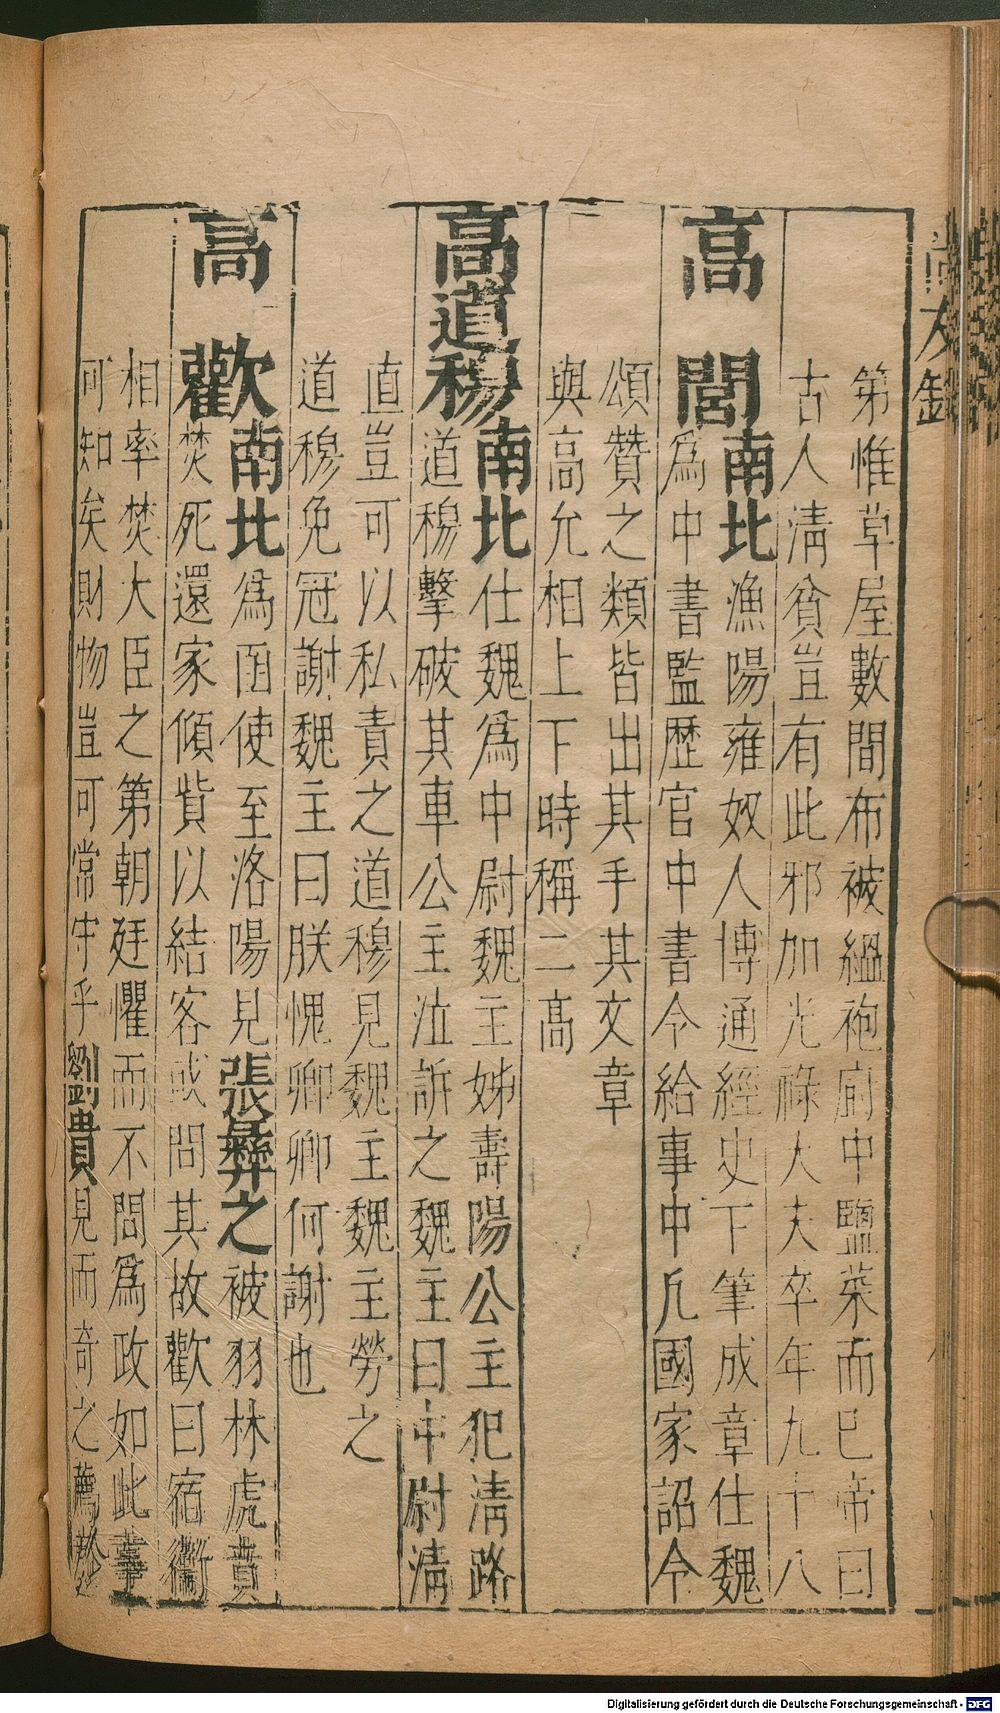 尚友錄
第惟草屋數間布被縕袍廚中鹽菜而已帝曰
古人淸貧豈有此邪加光祿大夫卒年九十八
高閭南北漁陽雍奴人博通經史下筆成章仕魏
爲中書監歷官中書令給事中凡國家詔令
頌贊之類皆出其手其文章
與高允相上下時稱二高
高道穆南北仕魏爲中尉魏主姊壽陽公主犯淸路
道穆擊破其車公主泣訴之魏主曰中尉淸
直豈可以私責之道穆見魏主魏主勞之
道穆免冠謝魏主曰朕愧卿卿何謝也
高歡南北爲函使至洛陽見張彝之被羽林虎賁
焚死還家傾貲以結客或問其故歡曰宿衞
相率焚大臣之第朝廷懼而不問爲政如此事
可知矣財物豈可常守乎劉貴見而奇之薦於
Digitalisierung gefördert durch die Deutsche Forschungsgemeinschaft - DFG